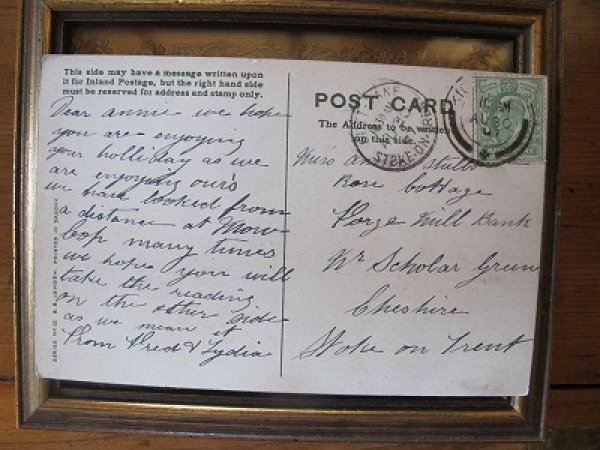 This side may have a message written upon
it for Inland Postage, but the right hand side
must be reserved for address and stamp only.
Dear annie we hope
you are enjoying
your holliday as we
are enjoying our's
we have looked from
a distance at Mow
Cop many times
we hope you will
take the reading
on the other side
as we mean it
From Fred & Lydia
POST CARD
The Address to be written
on this side.
STOKE-ON
Miss stubbs
Rose Cottage
Forge Mill Bank
Nr Scholar Green
Cheshire
Stoke on Trent